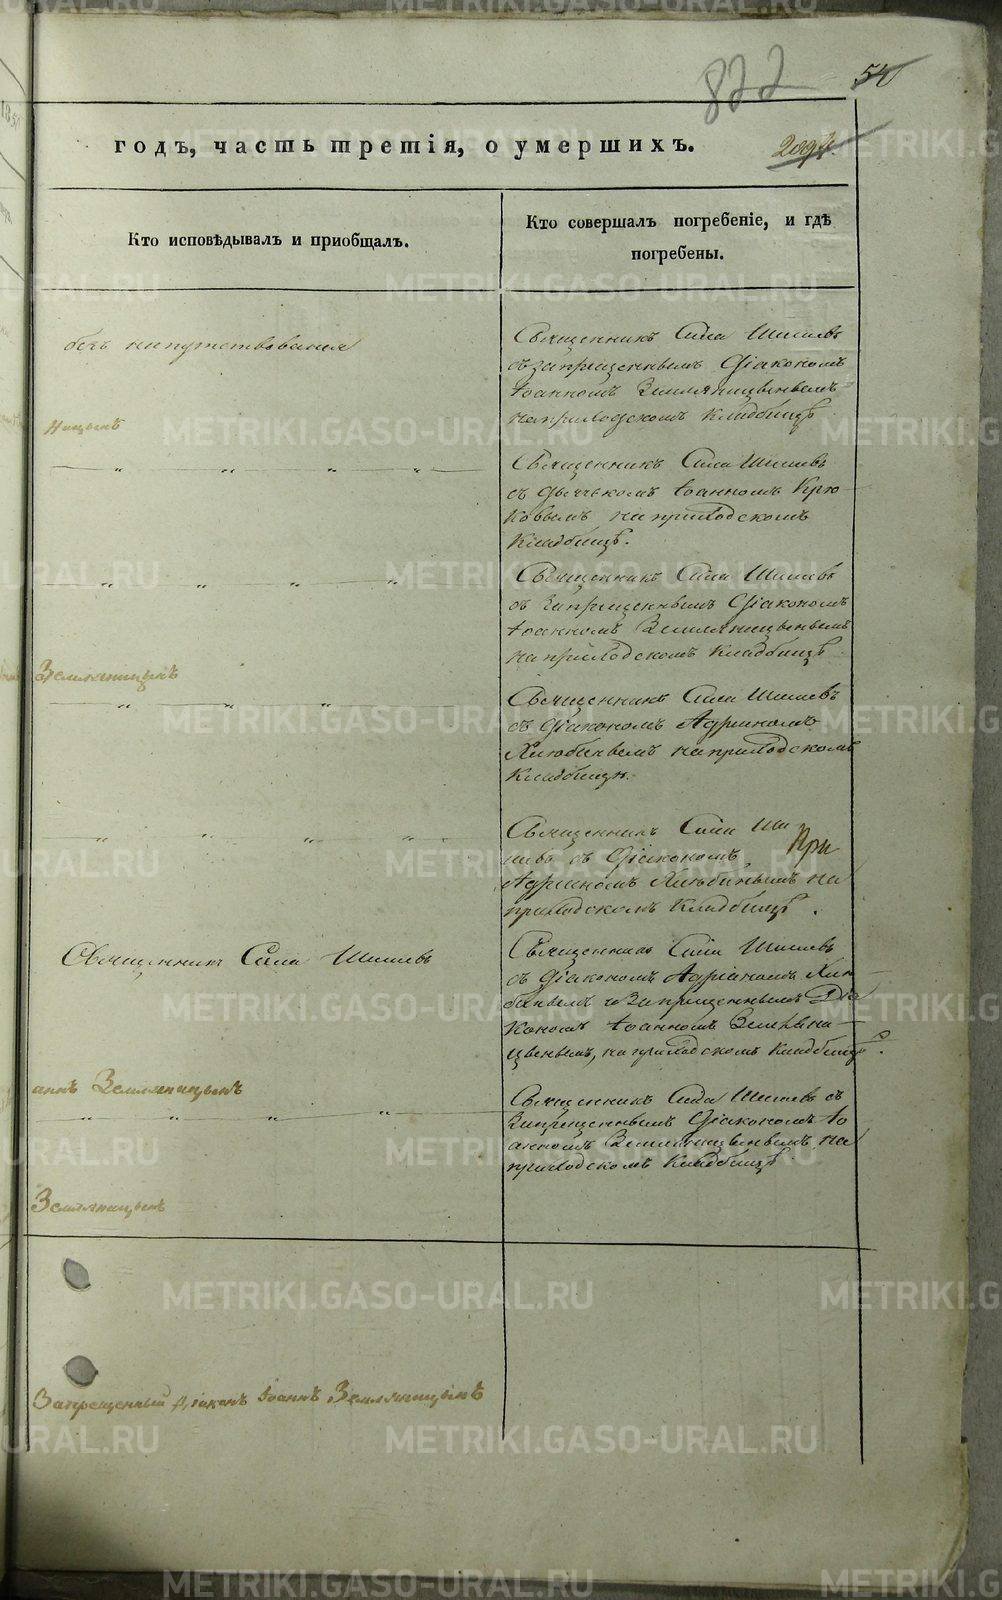 822
54
годъ, часть третія, о умершихъ.
Кто исповѣдывалъ и пріобщалъ.
Кто совершалъ погребеніе, и гдѣ
погребены.
безъ напутствованія
Священникъ Сила Шишевъ
съ запрещеннымъ Діакономъ
Іоанномъ Земляницынымъ
на приходскомъ кладбищѣ
ницынъ
Священникъ Сила Шишевъ
съ дьячькомъ Іоанномъ Крю
ковымъ на приходскомъ
кладбищѣ.
Священникъ Сила Шишевъ
съ запрещеннымъ Діакономъ
Іоанномъ Земляницынымъ
на приходскомъ кладбищѣ
Земляницынъ
Священникъ Сила Шишевъ
съ Діакономъ Адріаномъ
на приходскомъ
кладбищи.
Священникъ Сила Ши
шевъ съ Діакономъ
При
Адріаномъ на
приходскомъ кладбищѣ.
Священникъ Сила Шишевъ
Священникъ Сила Шишевъ
съ Діакономъ Адріаномъ
и Запрещеннымъ Діа
кономъ Іоанномъ Земляни
цынымъ, на приходскомъ кладбищѣ.
аннъ Земляницынъ
Священникъ Сила Шишевъ съ
Запрещеннымъ Діакономъ Іо
анномъ Земляницынымъ на
приходскомъ кладбищѣ
Земляницынъ
Запрещенный Діаконъ Іоаннъ Земляницынъ
METRIKI.GASO-URAL.RU